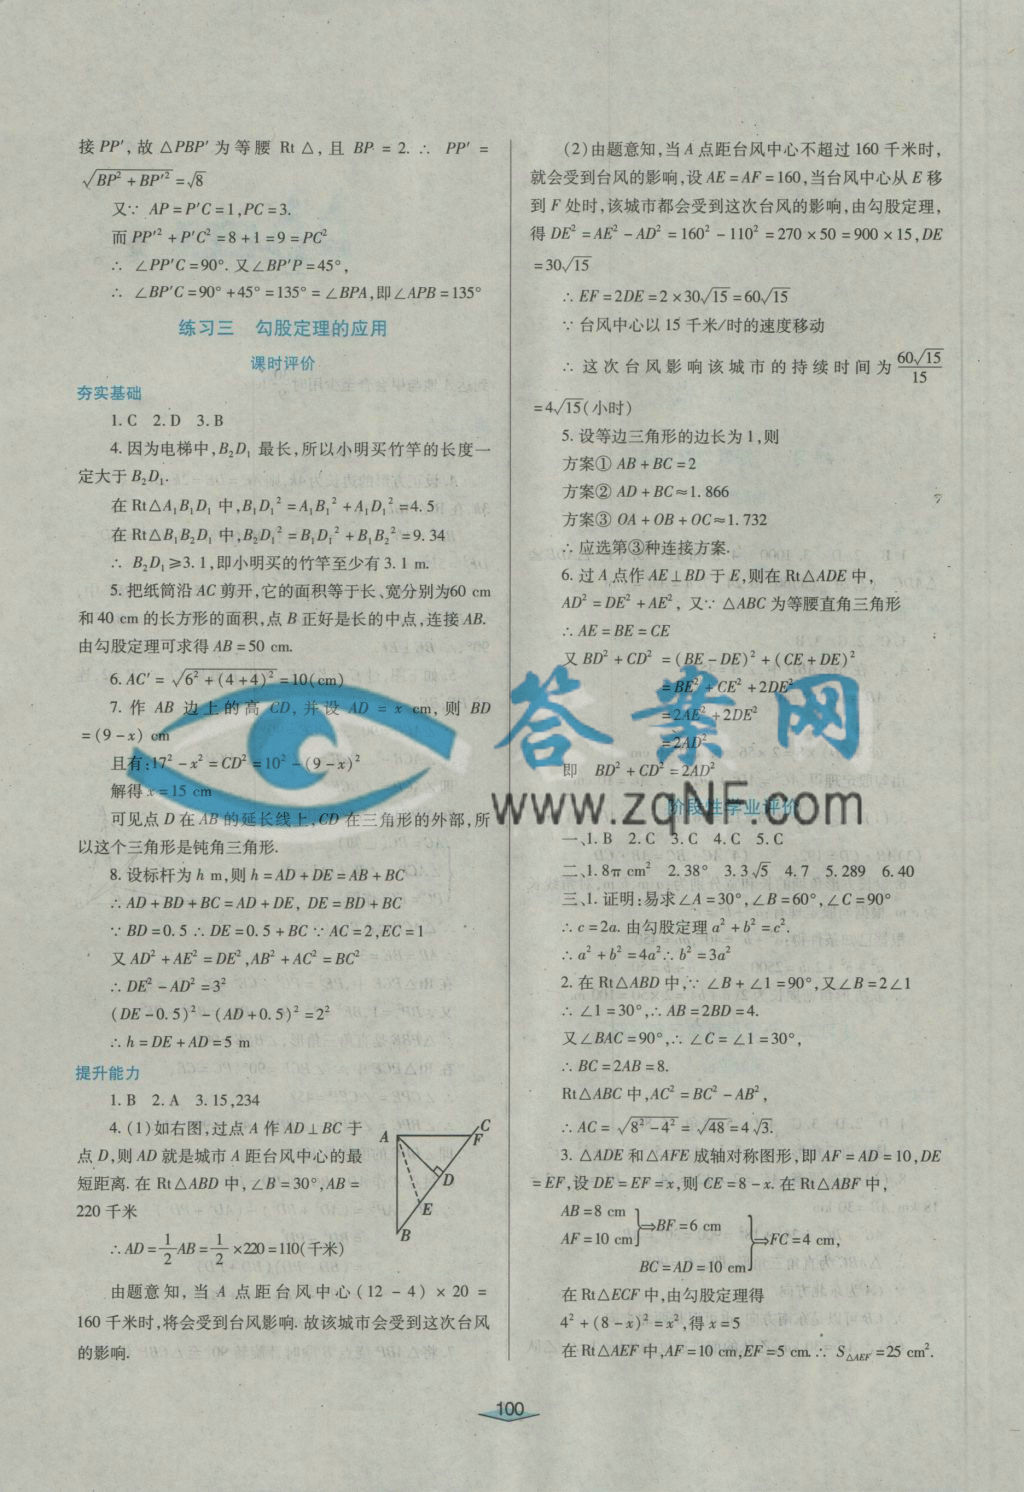 接PP′,故△PBP′为等腰 Rt△,且 BP = 2. ∴ PP′ =
√(BP²+BP′²)=√8
又∵ AP=P′C=1,PC=3.
而PP′²+P′C²=8+1=9=PC²
∴ ∠PP′C=90°. 又∠BP′P=45°,
∴ ∠BP′C=90°+45°=135°=∠BPA,即∠APB=135°
练习三 勾股定理的应用
课时评价
夯实基础
1. C 2. D 3. B
4. 因为电梯中,B₂D₁ 最长,所以小明买竹竿的长度一
定大于 B₂D₁.
在 Rt△A₁B₁D₁ 中,B₁D₁²=A₁B₁²+A₁D₁²=4.5
在 Rt△B₁B₂D₁ 中,B₂D₁²=B₁D₁²+B₁B₂²=9.34
∴ B₂D₁≥3.1,即小明买的竹竿至少有3.1 m.
5. 把纸筒沿 AC 剪开,它的面积等于长、宽分别为60 cm
和40 cm 的长方形的面积,点 B 正好是长的中点,连接 AB.
由勾股定理可求得 AB=50 cm.
6. AC′=√(6²+(4+4)²)=10(cm)
7. 作 AB 边上的高 CD,并设 AD = x cm,则 BD
=(9-x) cm
且有:17²-x²=CD²=10²-(9-x)²
解得 x=15 cm
可见点 D 在 AB 的延长线上,CD 在三角形的外部,所
以这个三角形是钝角三角形.
8. 设标杆为 h m,则 h=AD+DE=AB+BC
∴AD+BD+BC=AD+DE, DE=BD+BC
∵BD=0.5 ∴DE=0.5+BC ∵AC=2,EC=1
又 AD²+AE²=DE²,AB²+AC²=BC²
∴DE²-AD²=3²
(DE-0.5)²-(AD+0.5)²=2²
∴h=DE+AD=5 m
提升能力
1. B 2. A 3. 15,234
4. (1)如右图,过点 A 作 AD⊥BC 于
点 D,则 AD 就是城市 A 距台风中心的最
短距离. 在 Rt△ABD 中,∠B=30°,AB=
220 千米
∴AD=1/2AB=1/2×220=110(千米)
A
C
F
D
E
B
由题意知,当 A 点距台风中心(12-4)×20=
160 千米时,将会受到台风影响. 故该城市会受到这次台风
的影响.
(2)由题意知,当 A 点距台风中心不超过 160 千米时,
就会受到台风的影响,设 AE=AF=160,当台风中心从 E 移
到 F 处时,该城市都会受到这次台风的影响,由勾股定理,
得 DE²=AE²-AD²=160²-110²=270×50=900×15,DE
=30√15
∴EF=2DE=2×30√15=60√15
∵台风中心以 15 千米/时的速度移动
∴这次台风影响该城市的持续时间为 60√15/15
=4√15(小时)
5. 设等边三角形的边长为1,则
方案① AB+BC=2
方案② AD+BC≈1.866
方案③ OA+OB+OC≈1.732
∴应选第③种连接方案.
6. 过 A 点作 AE⊥BD 于 E,则在 Rt△ADE 中,
AD²=DE²+AE²,又∵△ABC 为等腰直角三角形
∴AE=BE=CE
又 BD²+CD²=(BE-DE)²+(CE+DE)²
=BE²+CE²+2DE²
=2AE²+2DE²
=2AD²
即 BD²+CD²=2AD²
阶段性学业评价
一、1. B 2. C 3. C 4. C 5. C
二、1. 8π cm² 2. 38° 3. 3√5 4. 7 5. 289 6. 40
三、1. 证明:易求∠A=30°,∠B=60°,∠C=90°
∴c=2a. 由勾股定理 a²+b²=c².
∴a²+b²=4a²∴b²=3a²
2. 在 Rt△ABD 中,∵∠B+∠1=90°,又∠B=2∠1
∴∠1=30°,∴AB=2BD=4.
又∠BAC=90°,∴∠C=∠1=30°,
∴BC=2AB=8.
Rt△ABC 中,AC²=BC²-AB²,
∴AC=√(8²-4²)=√48=4√3.
3. △ADE 和△AFE 成轴对称图形,即 AF=AD=10,DE
=EF,设 DE=EF=x,则 CE=8-x. 在 Rt△ABF 中,
AB=8 cm
AF=10 cm}⇒BF=6 cm
BC=AD=10 cm}⇒FC=4 cm,
在 Rt△ECF 中,由勾股定理得
4²+(8-x)²=x²,得 x=5
在 Rt△AEF 中,AF=10 cm,EF=5 cm.∴ S△AEF=25 cm².
100
答案网
www.zqNF.com